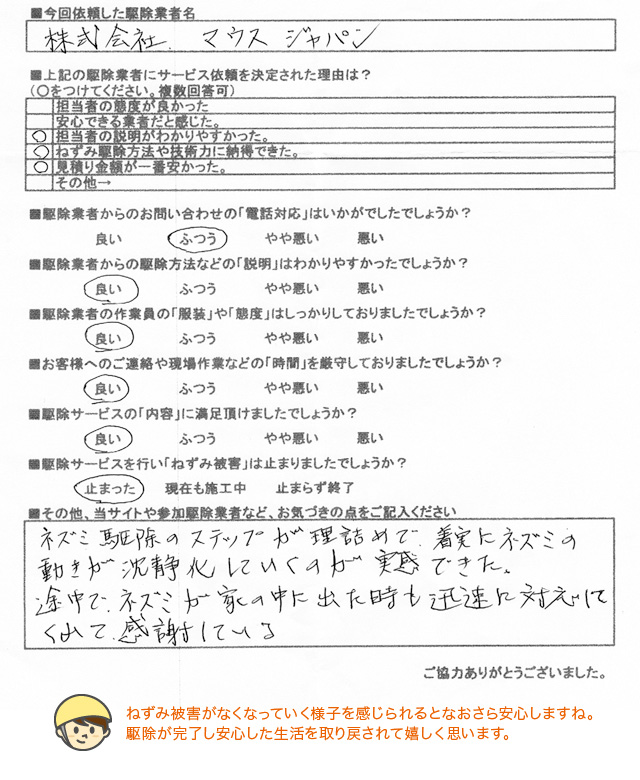 ■今回依頼した駆除業者名
株式会社 マウス ジャパン
■上記の駆除業者にサービス依頼を決定された理由は？
（○をつけてください。複数回答可）
担当者の態度が良かった
安心できる業者だと感じた。
○ 担当者の説明がわかりやすかった。
○ ねずみ駆除方法や技術力に納得できた。
○ 見積り金額が一番安かった。
その他→
■駆除業者からのお問い合わせの「電話対応」はいかがでしたでしょうか？
良い ふつう やや悪い 悪い
■駆除業者からの駆除方法などの「説明」はわかりやすかったでしょうか？
良い ふつう やや悪い 悪い
■駆除業者の作業員の「服装」や「態度」はしっかりしておりましたでしょうか？
良い ふつう やや悪い 悪い
■お客様へのご連絡や現場作業などの「時間」を厳守しておりましたでしょうか？
良い ふつう やや悪い 悪い
■駆除サービスの「内容」に満足頂けましたでしょうか？
良い ふつう やや悪い 悪い
■駆除サービスを行い「ねずみ被害」は止まりましたでしょうか？
止まった 現在も施工中 止まらず終了
■その他、当サイトや参加駆除業者など、お気づきの点をご記入ください
ネズミ駆除のステップが理詰めで、着実にネズミの
動きが沈静化していくのが実感できた。
途中で、ネズミが家の中に出た時も迅速に対応して
くれて、感謝している
ご協力ありがとうございました。
ねずみ被害がなくなっていく様子を感じられるとなおさら安心しますね。
駆除が完了し安心した生活を取り戻されて嬉しく思います。